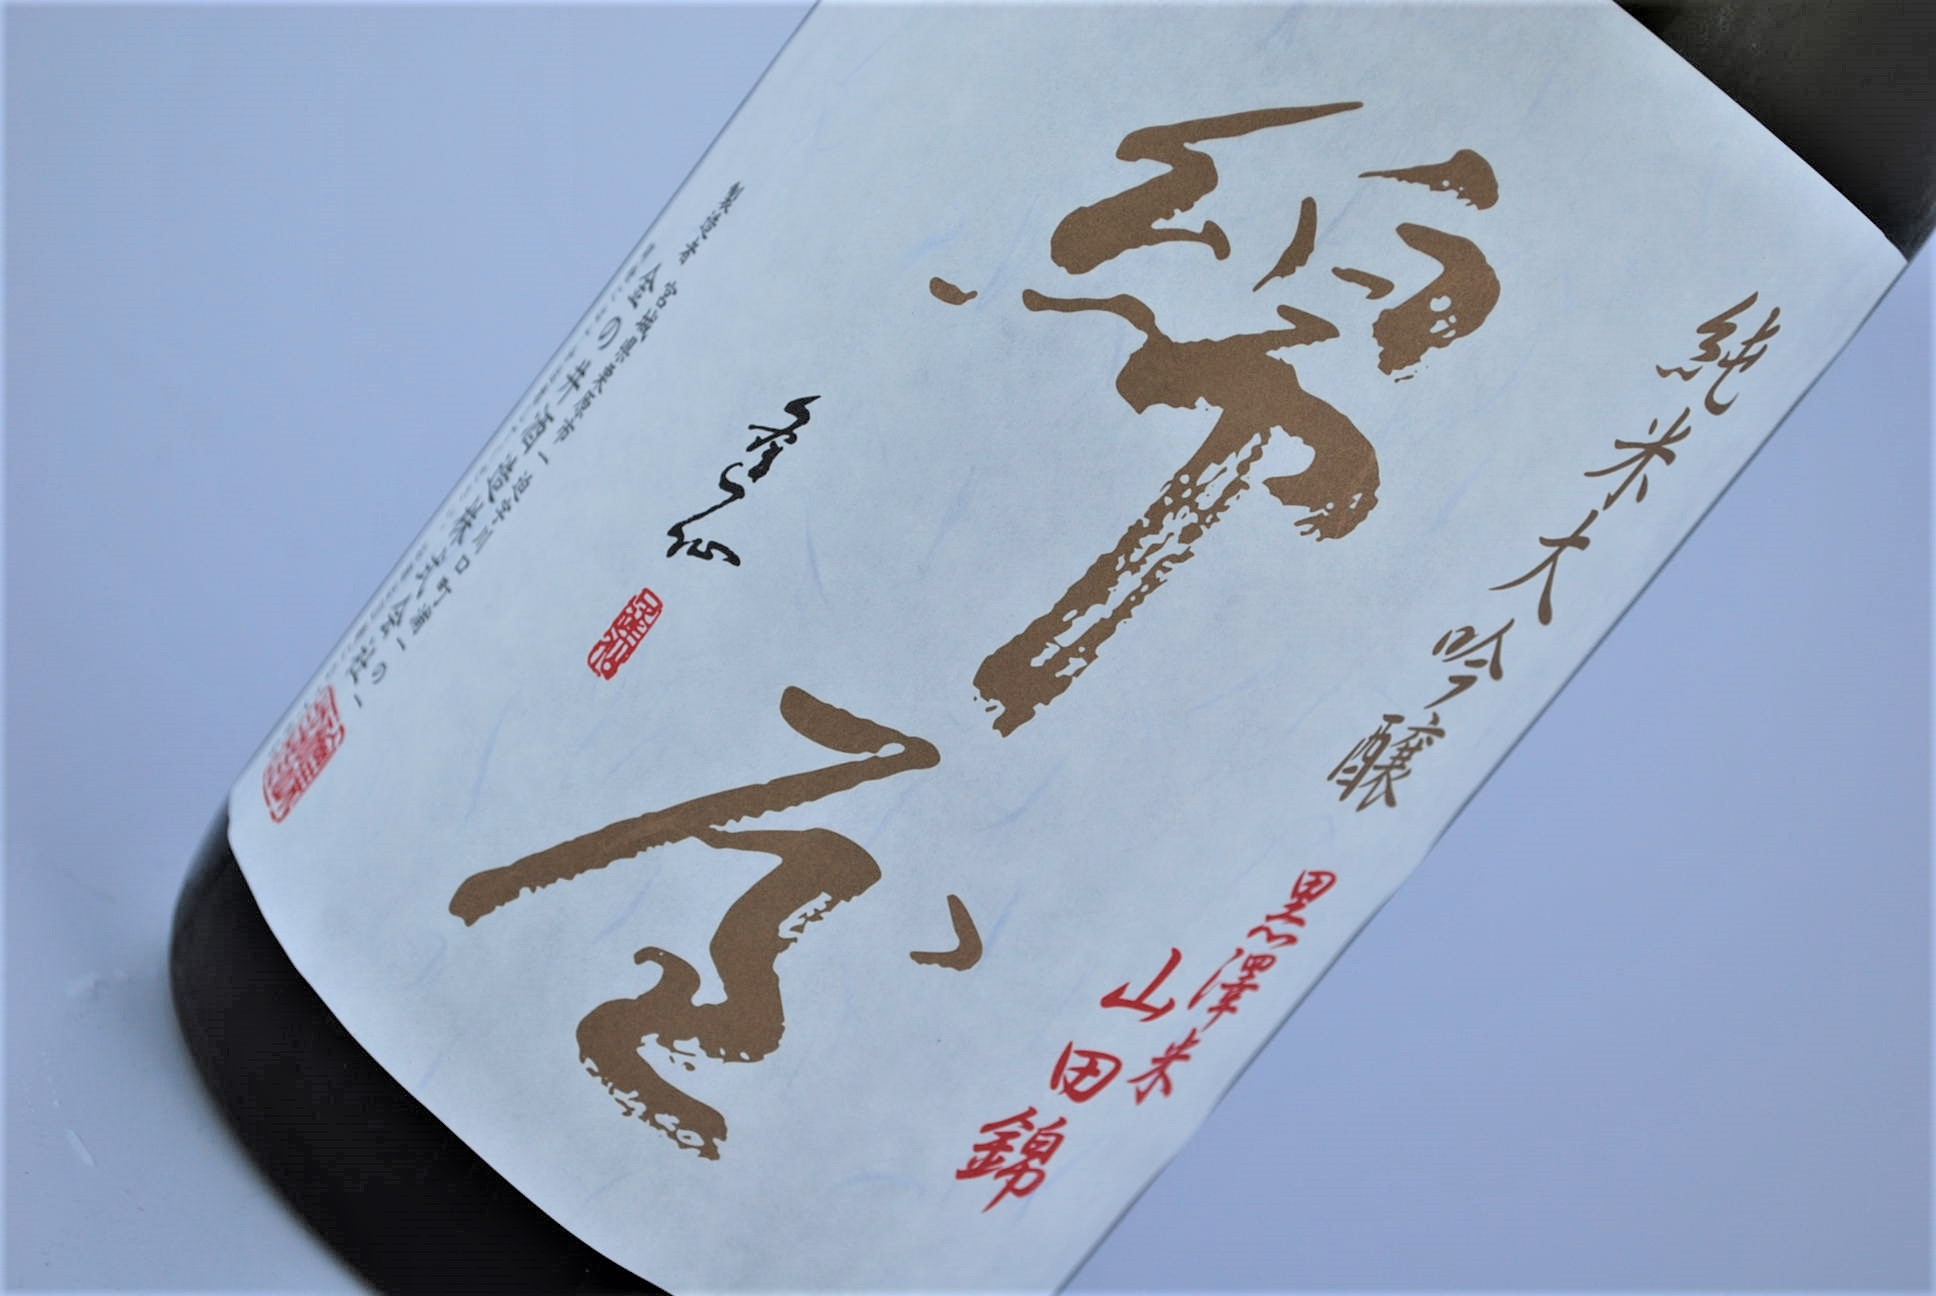 純米大吟醸
黒澤米
山田錦
綿屋
製造者 宮城県栗原市一迫字川口町浦一の一
金の井酒造株式会社